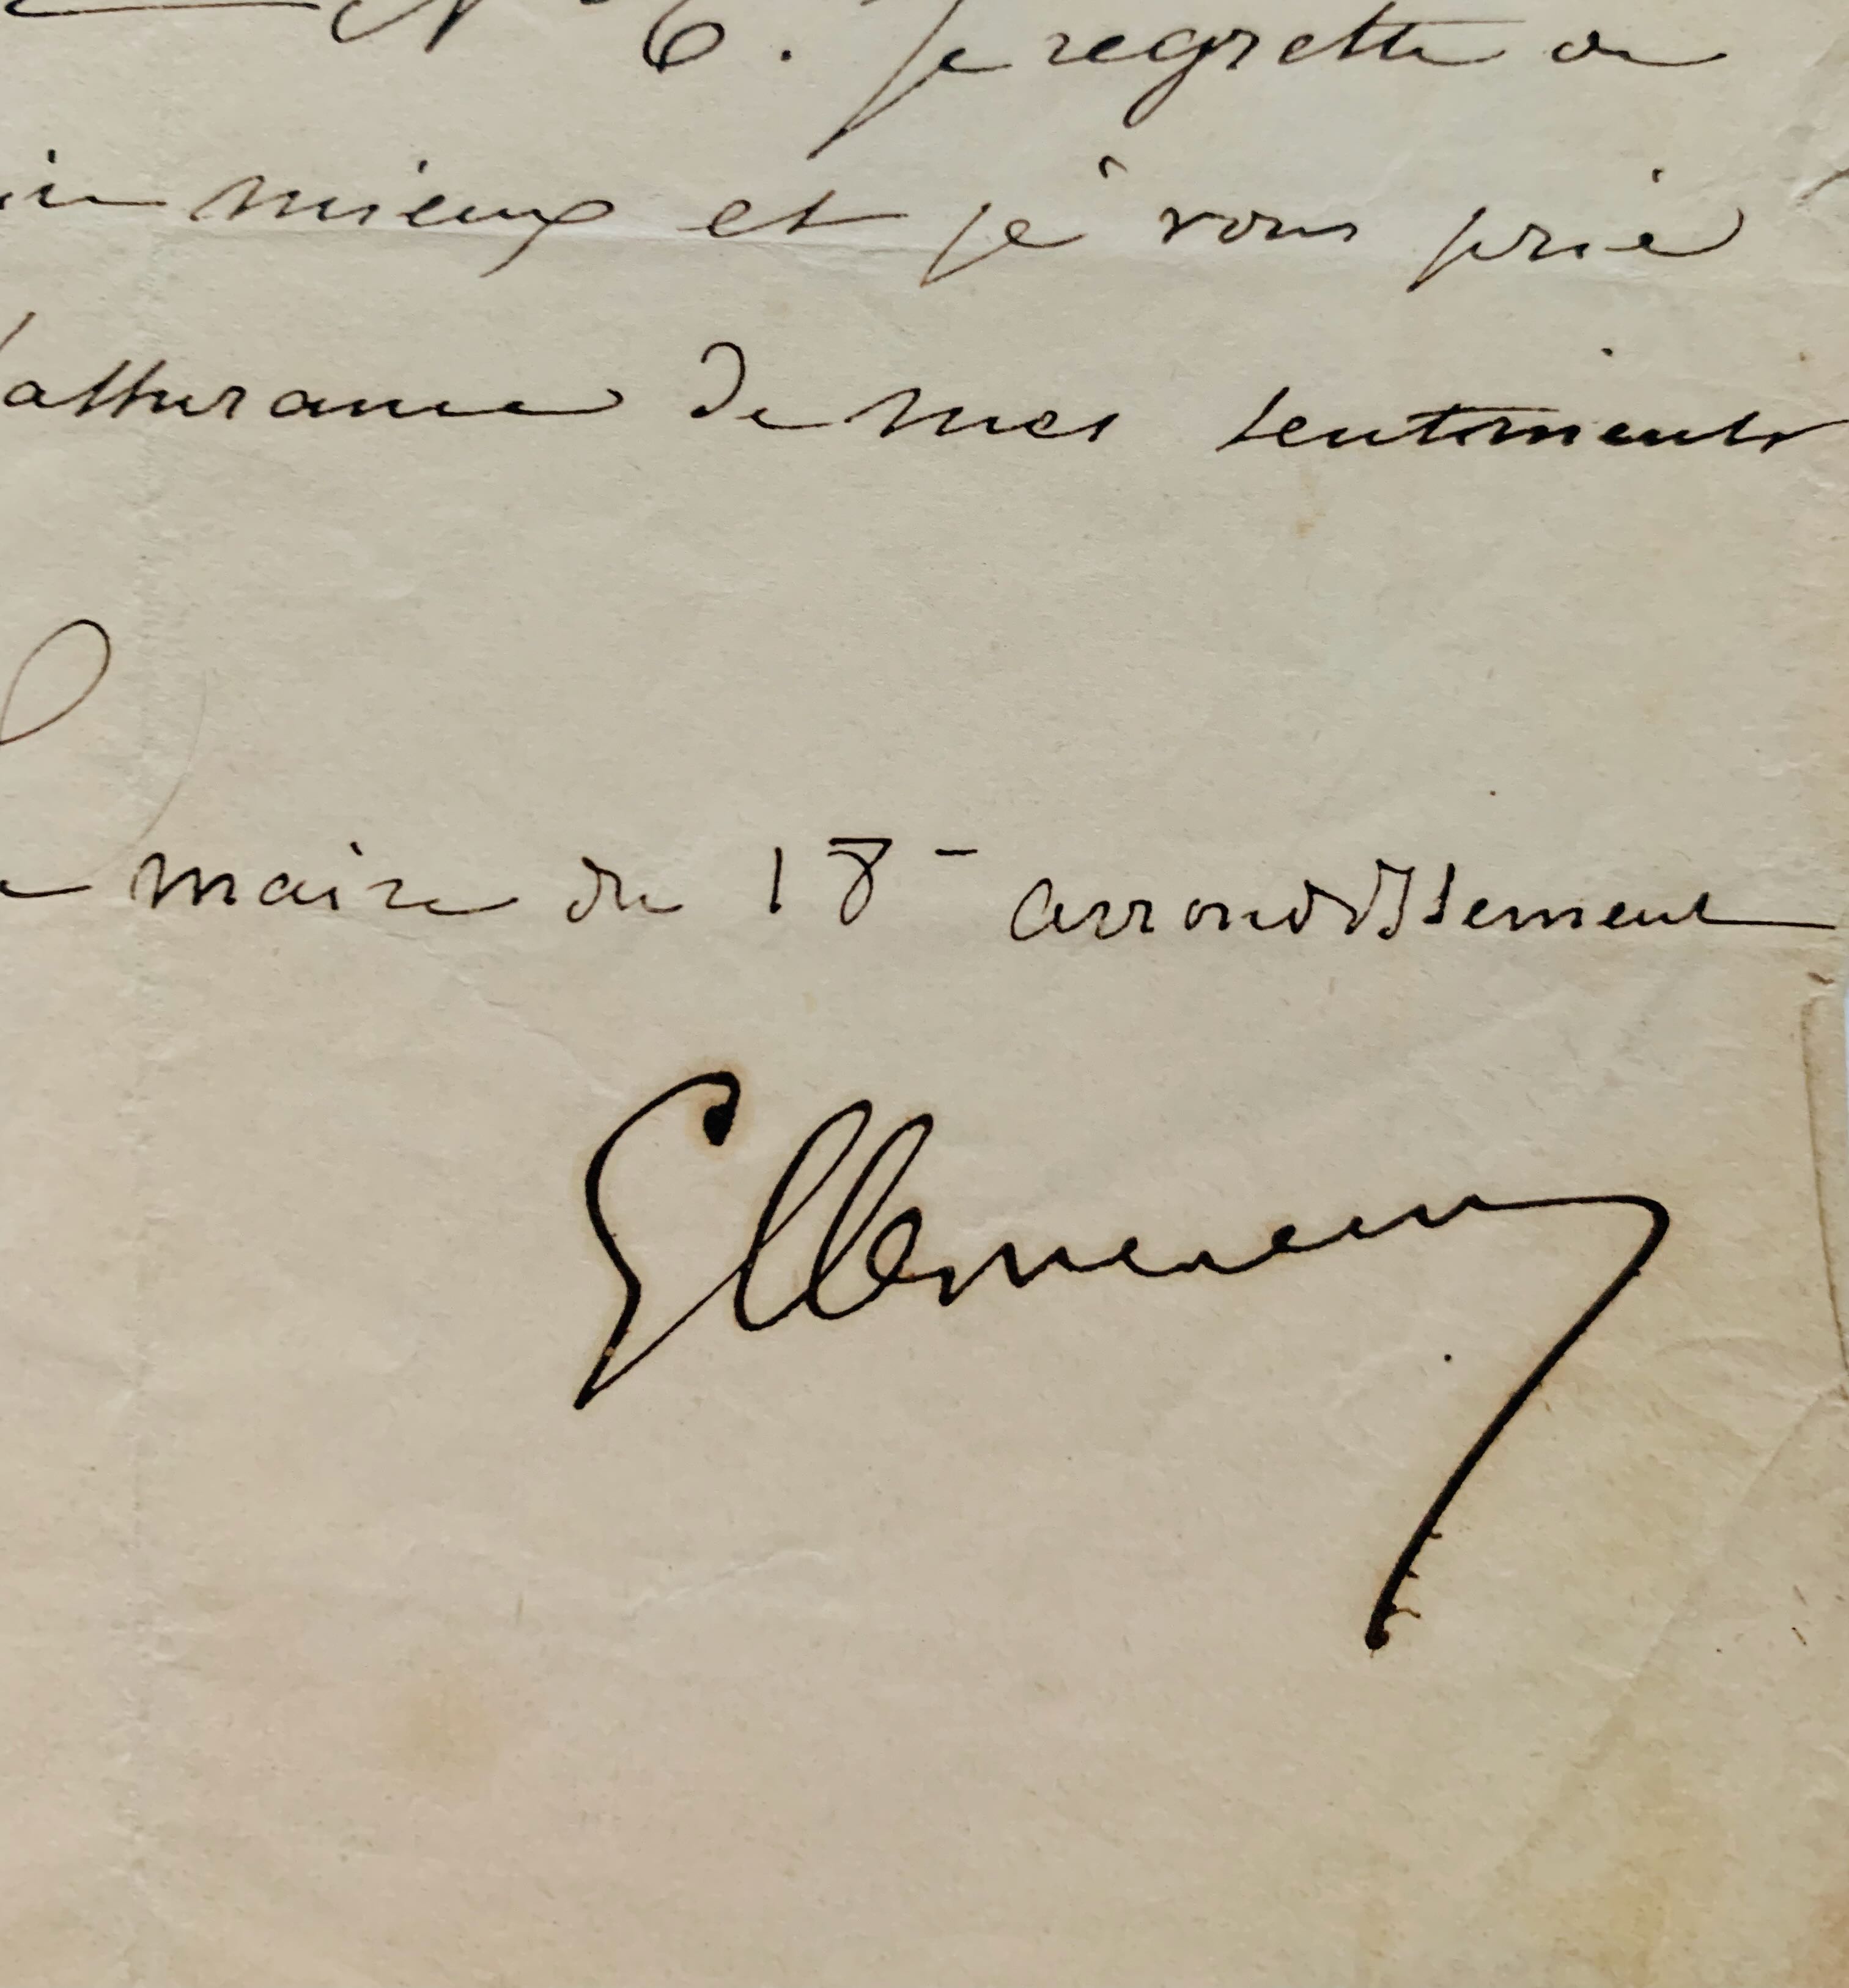 N° 6. Je regrette de
mieux et je vous prie
l'assurance de mes sentiments
maire du 18e arrondissement
GClemenceau